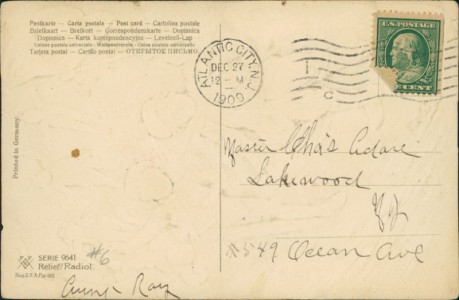 Postkarte – Carte postale – Post card – Cartolina postale
Dzielkaart – Brefkort – Correspondenskarte – Dopisnica
Dopisnice – Karta korespondencyjna – Levelező-Lap
Tarjeta postal – Cartão postal – ОТКРЫТОЕ ПИСЬМО
ATLANTIC CITY, N.J.
DEC 27
12 – M
1909
U.S. POSTAGE
CENT
Printed in Germany.
Master Chas
Lakewood
N J
#549 Ocean Ave
SERIE 9641
Relief/Radiol.
#6
Ray